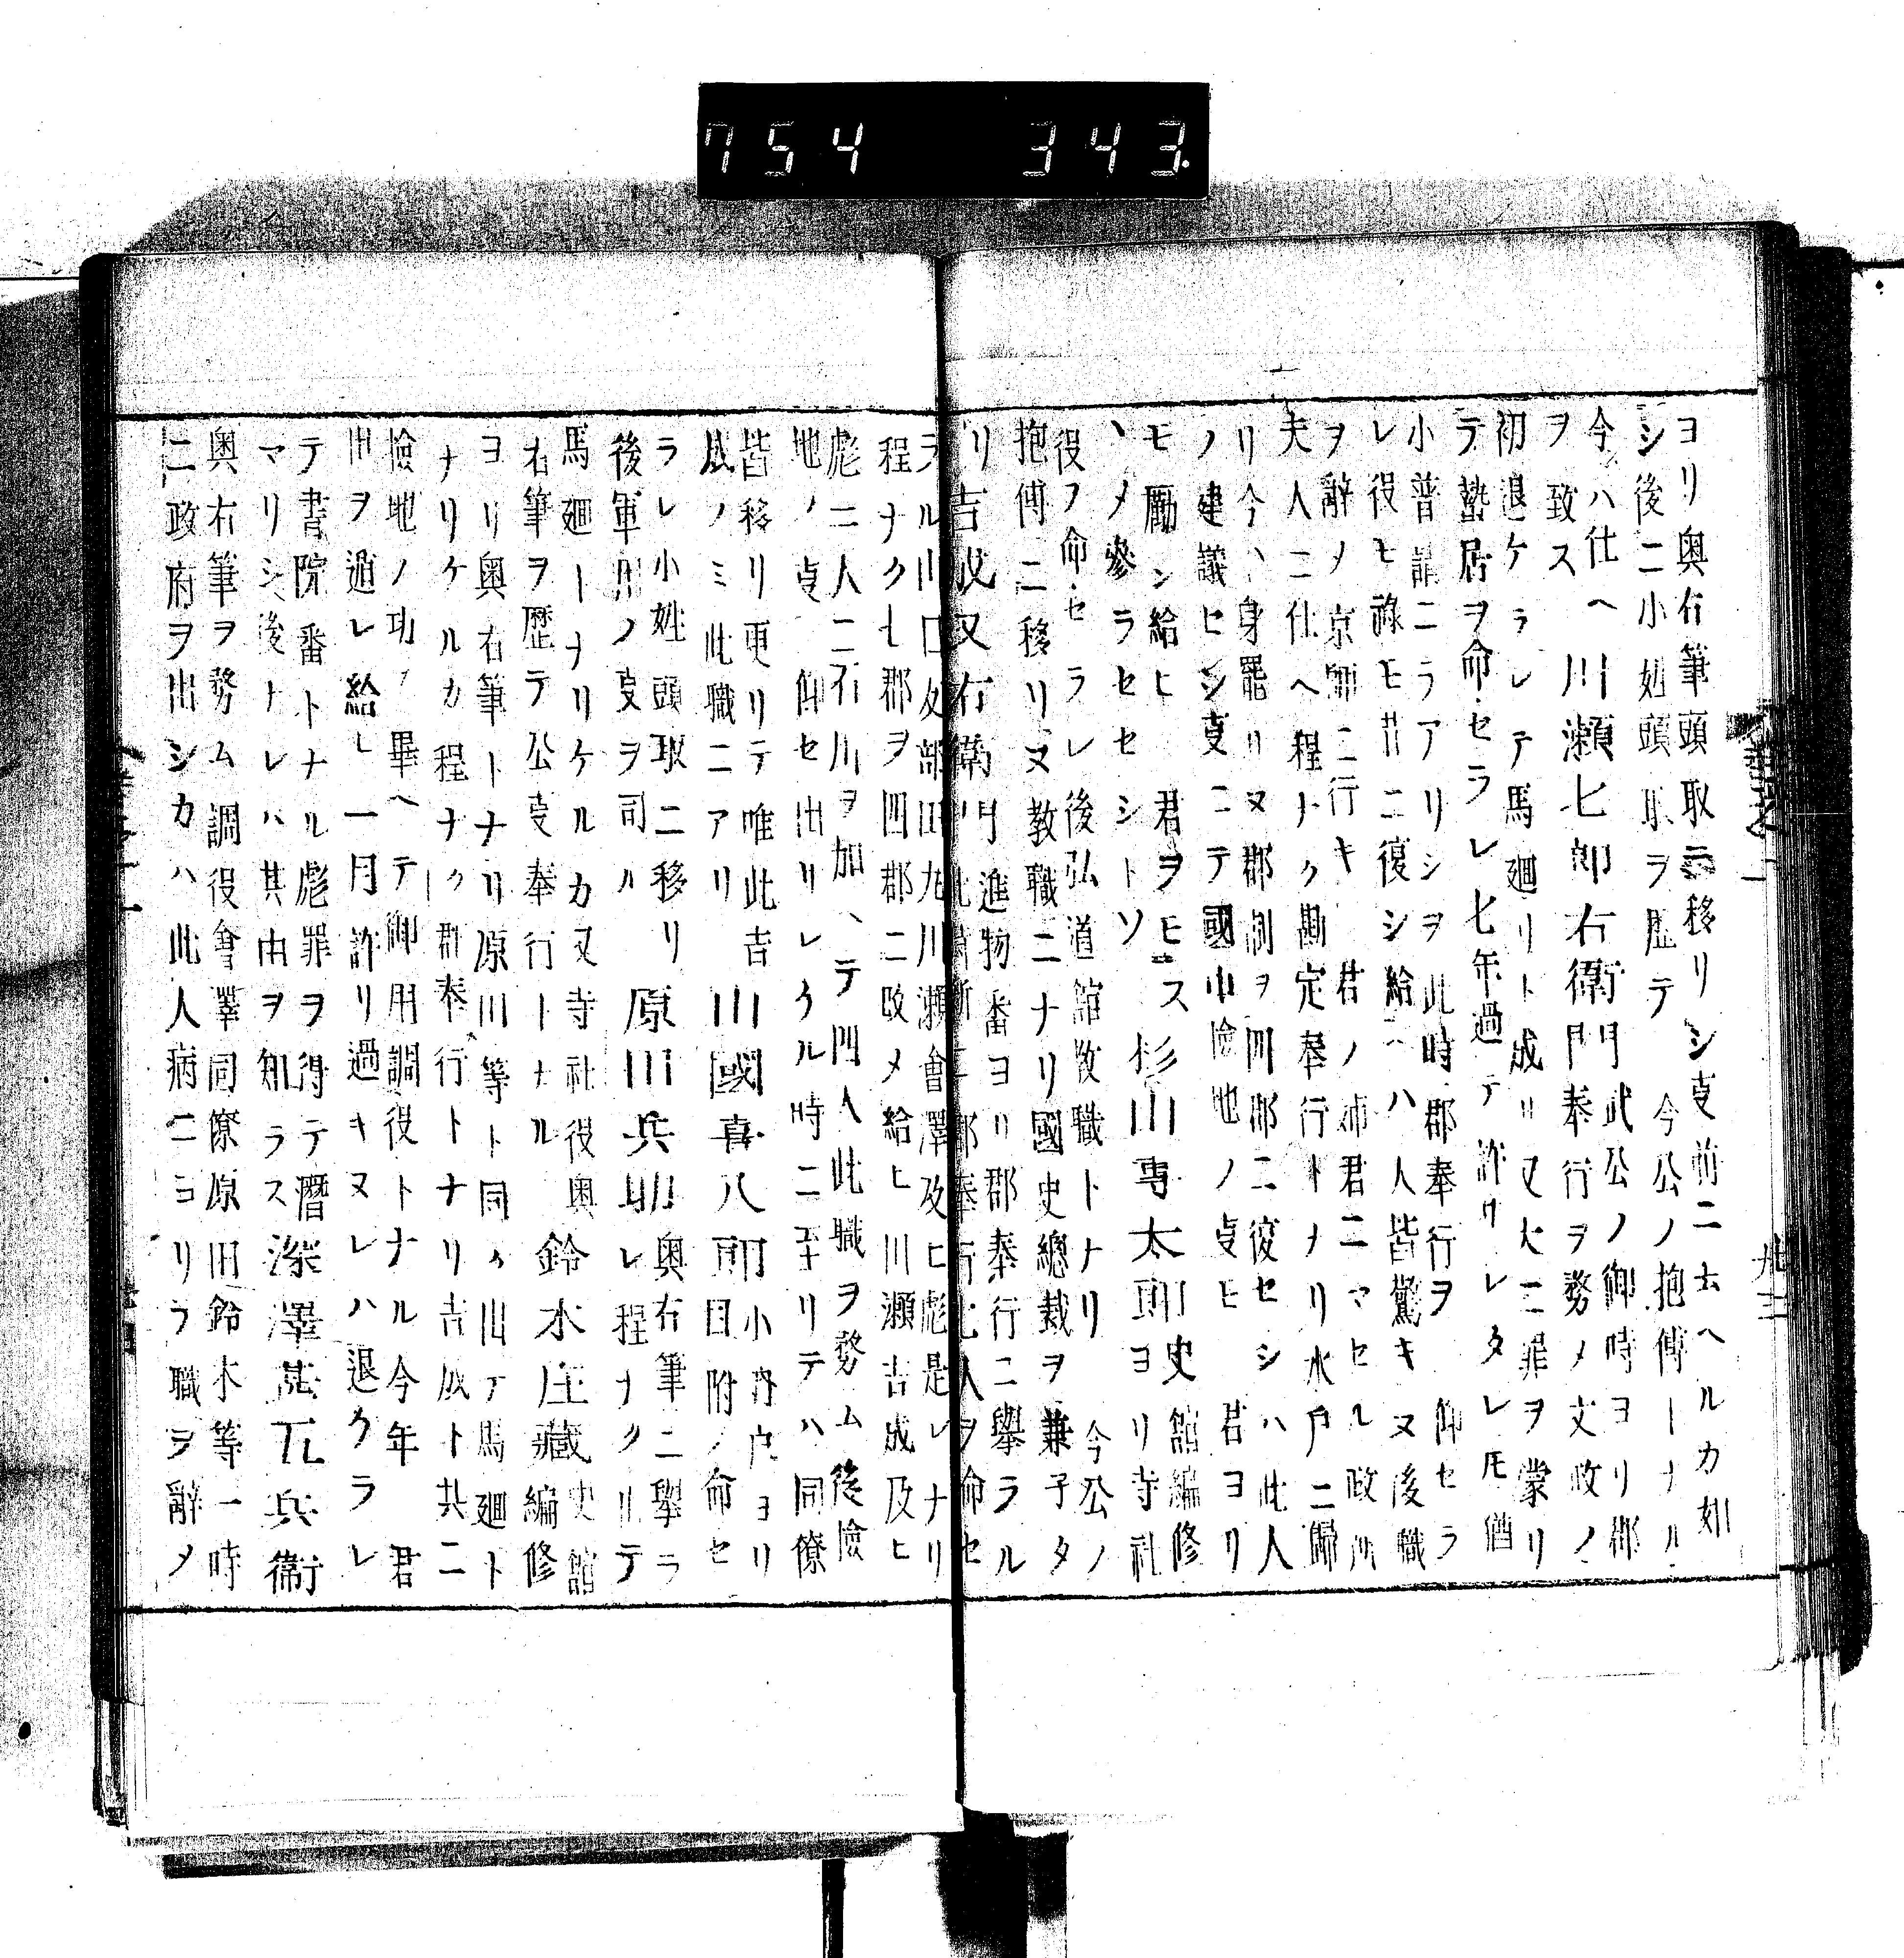 754 343
ヨリ奥右筆頭取ニ移リシ叓前ニ云ヘルカ如
シ後ニ小姓頭取ヲ歴テ 今公ノ抱傅トナル
今ハ仕ヘ 川瀬七郎右衛門 武公ノ御時ヨリ郡
ヲ致ス 奉行ヲ務メ文政ノ
初退ケラレテ馬廻リト成リ又大ニ罪ヲ蒙リ
テ蟄居ヲ命セラレ七年過テ許サレタレ𪜈猶
小普請ニテアリシヲ此時郡奉行ヲ 仰セラ
レ役モ禄モ共ニ復シ給ヘハ人皆驚キヌ後職
ヲ辭メ京師ニ行キ 君ノ姉君ニマセル政所
夫人ニ仕ヘ程ナク勘定奉行トナリ水戸ニ歸
リ今ハ身罷リヌ郡制ヲ四郡ニ復セシハ此人
ノ建議セシ叓ニテ國中險地ノ叓モ 君ヨリ
モ勵シ給ヒ 君ヲモス 杉山専太郎 史館編修
ヽメ參ラセセシトソ ヨリ寺社
役ヲ命セラレ後弘道館教職トナリ 今公ノ
抱傅ニ移リヌ教職ニナリ國史總裁ヲ兼子タ
リ 吉成又右衛門 進物番ヨリ郡奉行ニ擧ラル
此時新ニ郡奉行七人ヲ命セ
ラル川口友部田丸川瀬會澤及ヒ彪是レナリ
程ナク七郡ヲ四郡ニ改メ給ヒ川瀬吉成及ヒ
彪ニ人ニ石川ヲ加ヘテ四人此職ヲ務ム後險
地ノ叓 仰セ出サレケル時ニ至リテハ同僚
皆移リ更リテ唯此吉 川國喜八郎 小納戸ヨリ
成ノミ此職ニアリ 目附ノ命セ
ラレ小姓頭取ニ移リ 原川兵助 奥右筆ニ擧ラ
後軍用ノ叓ヲ司ル レ程ナクシテ
馬廻トナリケルカ又寺社役奥 鈴木庄藏 史館
右筆ヲ歴テ公叓奉行トナル 編修
ヨリ奥右筆トナリ原川等ト同ク出テ馬廻ト
ナリケルカ程ナク郡奉行トナリ吉成ト共ニ
險地ノ功ヲ畢ヘテ御用調役トナル今年 君
世ヲ遁レ給ヒ一月許リ過キヌレハ退ケラレ
テ書院番トナル彪罪ヲ得テ暦 深澤甚五兵衛
マリシ後ナレハ其由ヲ知ラス
奥右筆ヲ務ム調役會澤同僚原田鈴木等一時
ニ政府ヲ出シカハ此人病ニヨリテ職ヲ辭メ